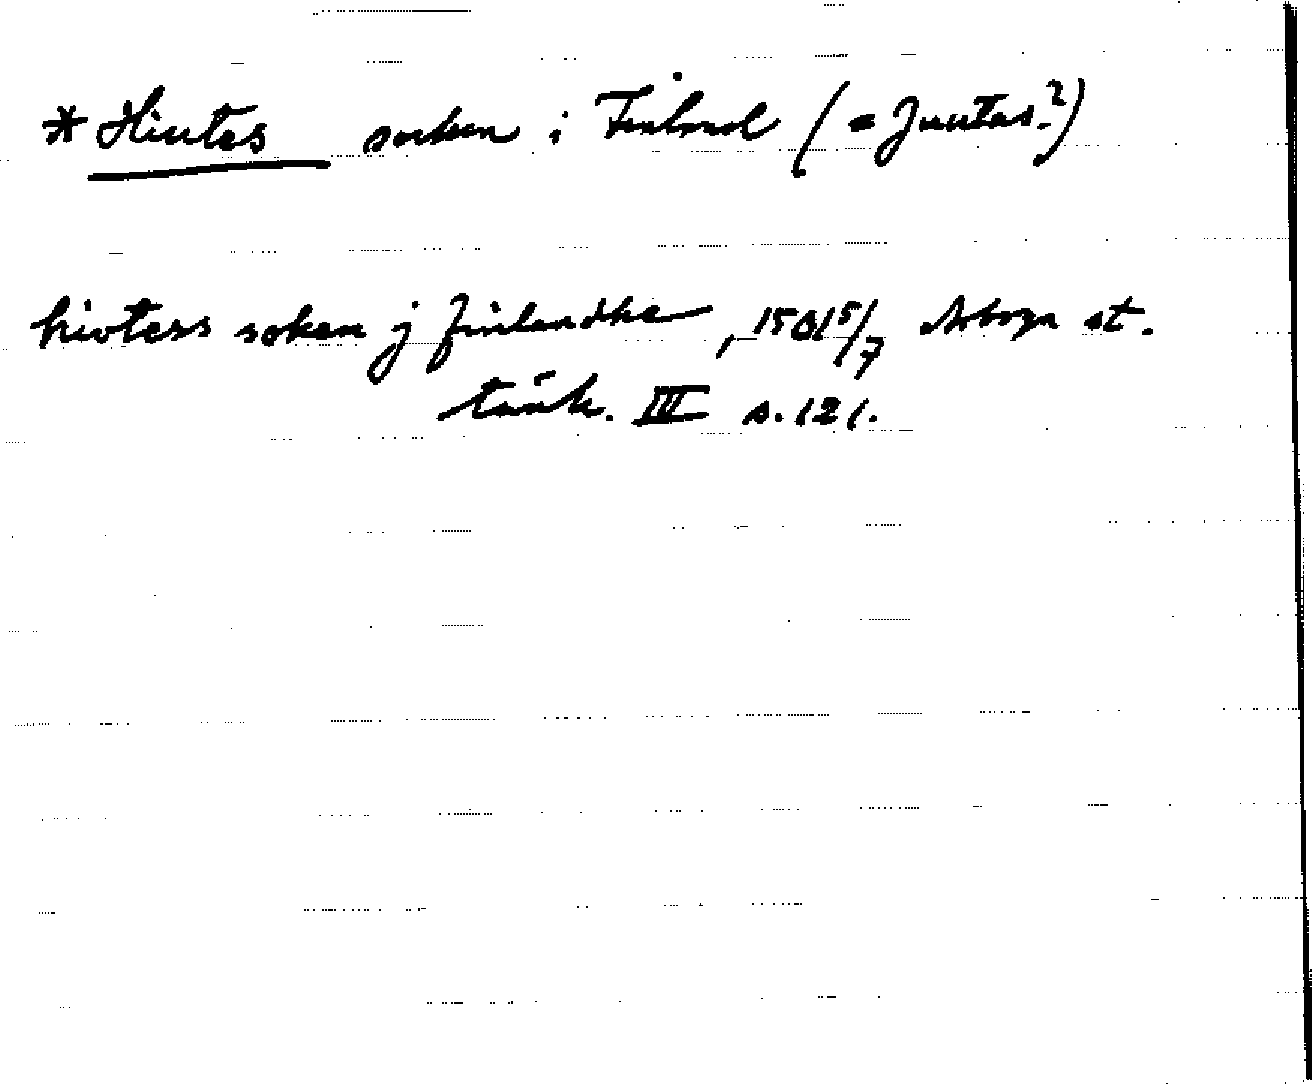 * Hiutes socken i Finland (= Juutas?)
hivtess soken j finlandhe, 1501 5/7 Arboga st.
tänk. III s. 121.